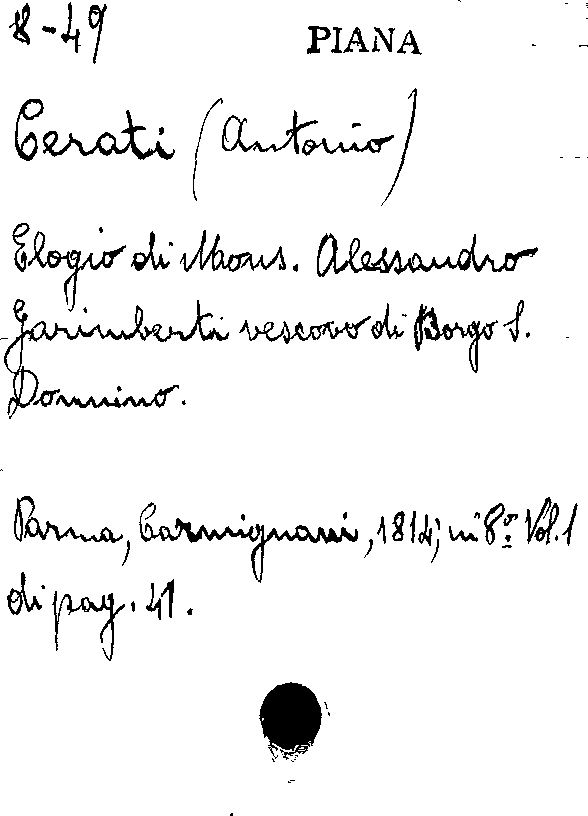 8-49
PIANA
Cerati (Antonio)
Elogio di Mons. Alessandro
Garimberti vescovo di Borgo S.
Donnino.
Parma, Carmignani, 1814; in 8.º Vol. 1
di pag. 41.